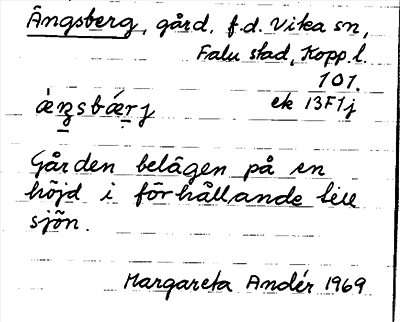 Ängsberg, gård, f.d. Vika sn,
Falu stad, Kopp.l.
101.
ek 13F1j
Gården belägen på en
höjd i förhållande till
sjön.
Margareta Andér 1969